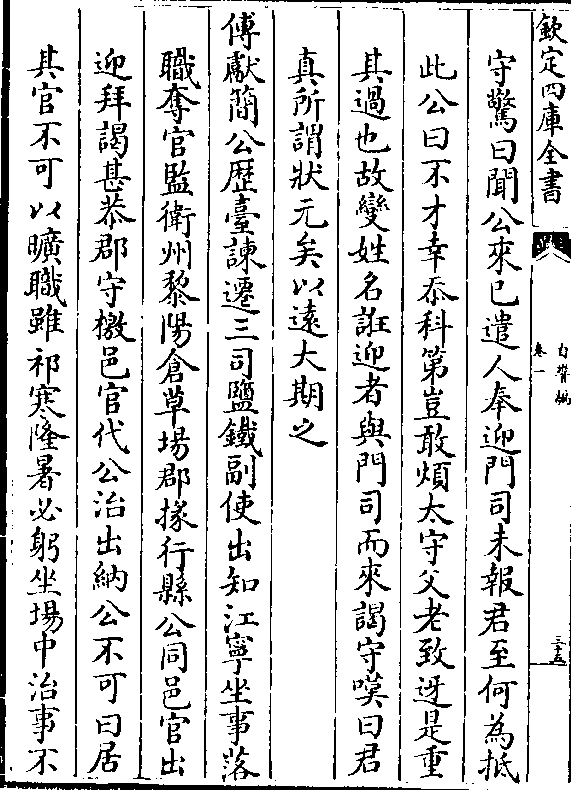 欽定四庫全書
自警編
卷一
三十五
守驚曰聞公來已遣人奉迎門司未報君至何為抵
此公曰不才幸忝科第豈敢煩太守父老致迓是重
其過也故變姓名誑迎者與門司而來謁守嘆曰君
真所謂狀元矣以遠大期之
傅獻簡公歷臺諫遷三司鹽鐵副使出知江寧坐事落
職奪官監衛州黎陽倉草場郡掾行縣公同邑官出
迎拜謁甚恭郡守檄邑官代公治出納公不可曰居
其官不可以曠職雖祁寒隆暑必躬坐場中治事不